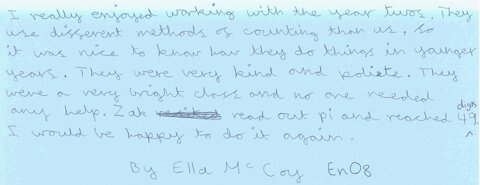 I really enjoyed working with the year twos. They
use different methods of counting than us, so
it was nice to know how they do things in younger
years. They were very kind and poliete. They
were a very bright class and no one needed
any help. Zak read out pi and reached 49 digits.
I would be happy to do it again.
By Ella McCoy EnO8